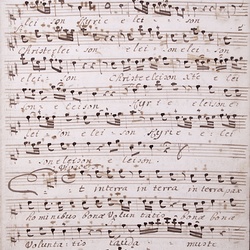 lei son Kyrie e lei
Christe lei son e lei son e lei son
elei son Christe eleison Ste e lei
son e lei son Kyrie e lei
lei son e lei son Kyrie e lei
son eleison e leison
t in terra in terra in terra pax
hominibus bonæ Volun tatis bonæ bonæ
Volunta tis